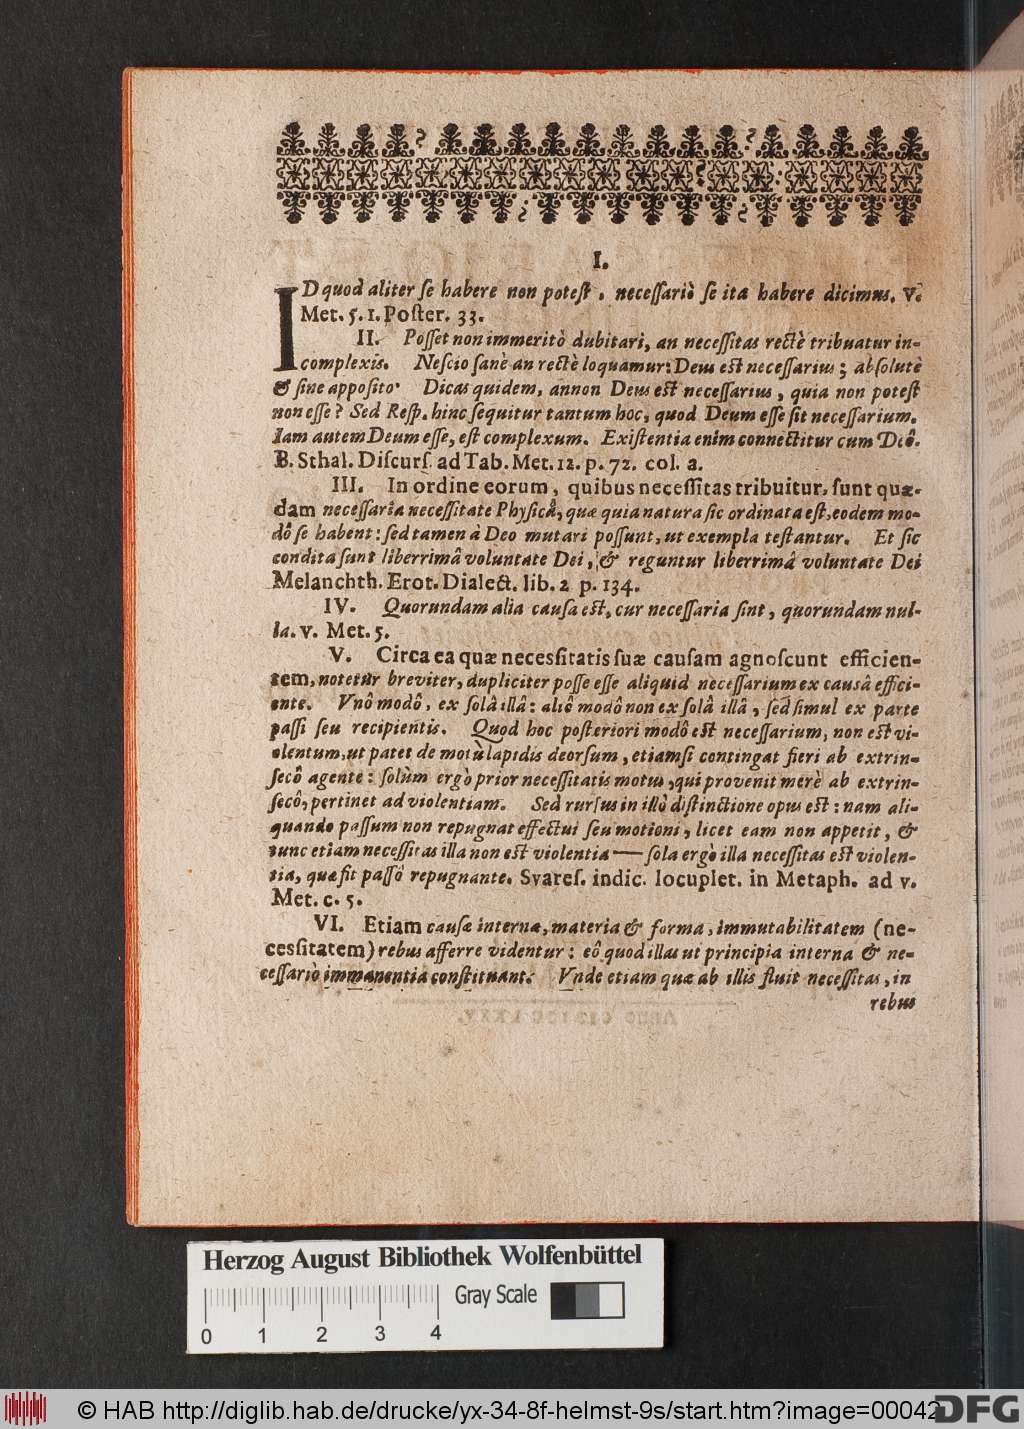 I.
ID quod aliter ſe habere non poteſt, neceſſariò ſe ita habere dicimus. v.
Met. 5. 1. Poſter. 33.
II. Poſſet non immeritò dubitari, an neceſſitas rectè tribuatur in-
complexis. Neſcio ſanè an rectè loquamur: Deus eſt neceſſarius; abſolutè
& ſine appoſito. Dicas quidem, annon Deus eſt neceſſarius, quia non poteſt
non eſſe? Sed Reſp. hinc ſequitur tantum hoc, quod Deum eſſe ſit neceſſarium.
Iam autem Deum eſſe, eſt complexum. Exiſtentia enim connectitur cum Deô.
B. Sthal. Diſcurſ. ad Tab. Met. 12. p. 72. col. a.
III. In ordine eorum, quibus neceſſitas tribuitur, ſunt quæ-
dam neceſſaria neceſſitate Phyſicâ, quæ quia natura ſic ordinata eſt, eodem mo-
dô ſe habent: ſed tamen à Deo mutari poſſunt, ut exempla teſtantur. Et ſic
condita ſunt liberrimâ voluntate Dei, & reguntur liberrimâ voluntate Dei
Melanchth. Erot. Dialect. lib. 2 p. 134.
IV. Quorundam alia cauſa eſt, cur neceſſaria ſint, quorundam nul-
la. v. Met. 5.
V. Circa ea quæ necesſitatis ſuæ cauſam agnoſcunt efficien-
tem, notetur breviter, dupliciter poſſe eſſe aliquid neceſſarium ex causâ effici-
ente. Vnô modô, ex ſolâ illâ: aliô modô non ex ſolâ illâ, ſed ſimul ex parte
paſſi ſeu recipientis. Quod hoc poſteriori modô eſt neceſſarium, non eſt vi-
olentum, ut patet de motù lapidis deorſum, etiamſi contingat fieri ab extrin-
ſecô agente: ſolùm ergò prior neceſſitatis motus, qui provenit merè ab extrin-
ſecô, pertinet ad violentiam. Sed rurſus in illò diſtinctione opus eſt: nam ali-
quando paſſum non repugnat effectui ſeu motioni, licet eam non appetit, &
tunc etiam neceſſitas illa non eſt violentia — ſola ergò illa neceſſitas eſt violen-
tia, quæ fit paſſô repugnante. Svareſ. indic. locuplet. in Metaph. ad v.
Met. c. 5.
VI. Etiam cauſæ internæ, materia & forma, immutabilitatem (ne-
cesſitatem) rebus afferre videntur: eô quod illas ut principia interna & ne-
ceſſariò immanentia conſtituant. Vnde etiam quæ ab illis fluit neceſſitas, in
rebus
Herzog August Bibliothek Wolfenbüttel
Gray Scale
0 1 2 3 4
© HAB http://diglib.hab.de/drucke/yx-34-8f-helmst-9s/start.htm?image=00042
DFG